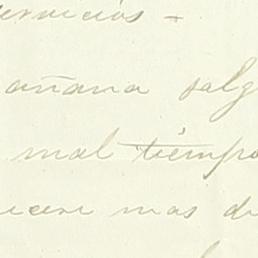 ervicios =
añana salg
mal tiempo
ecere mas d